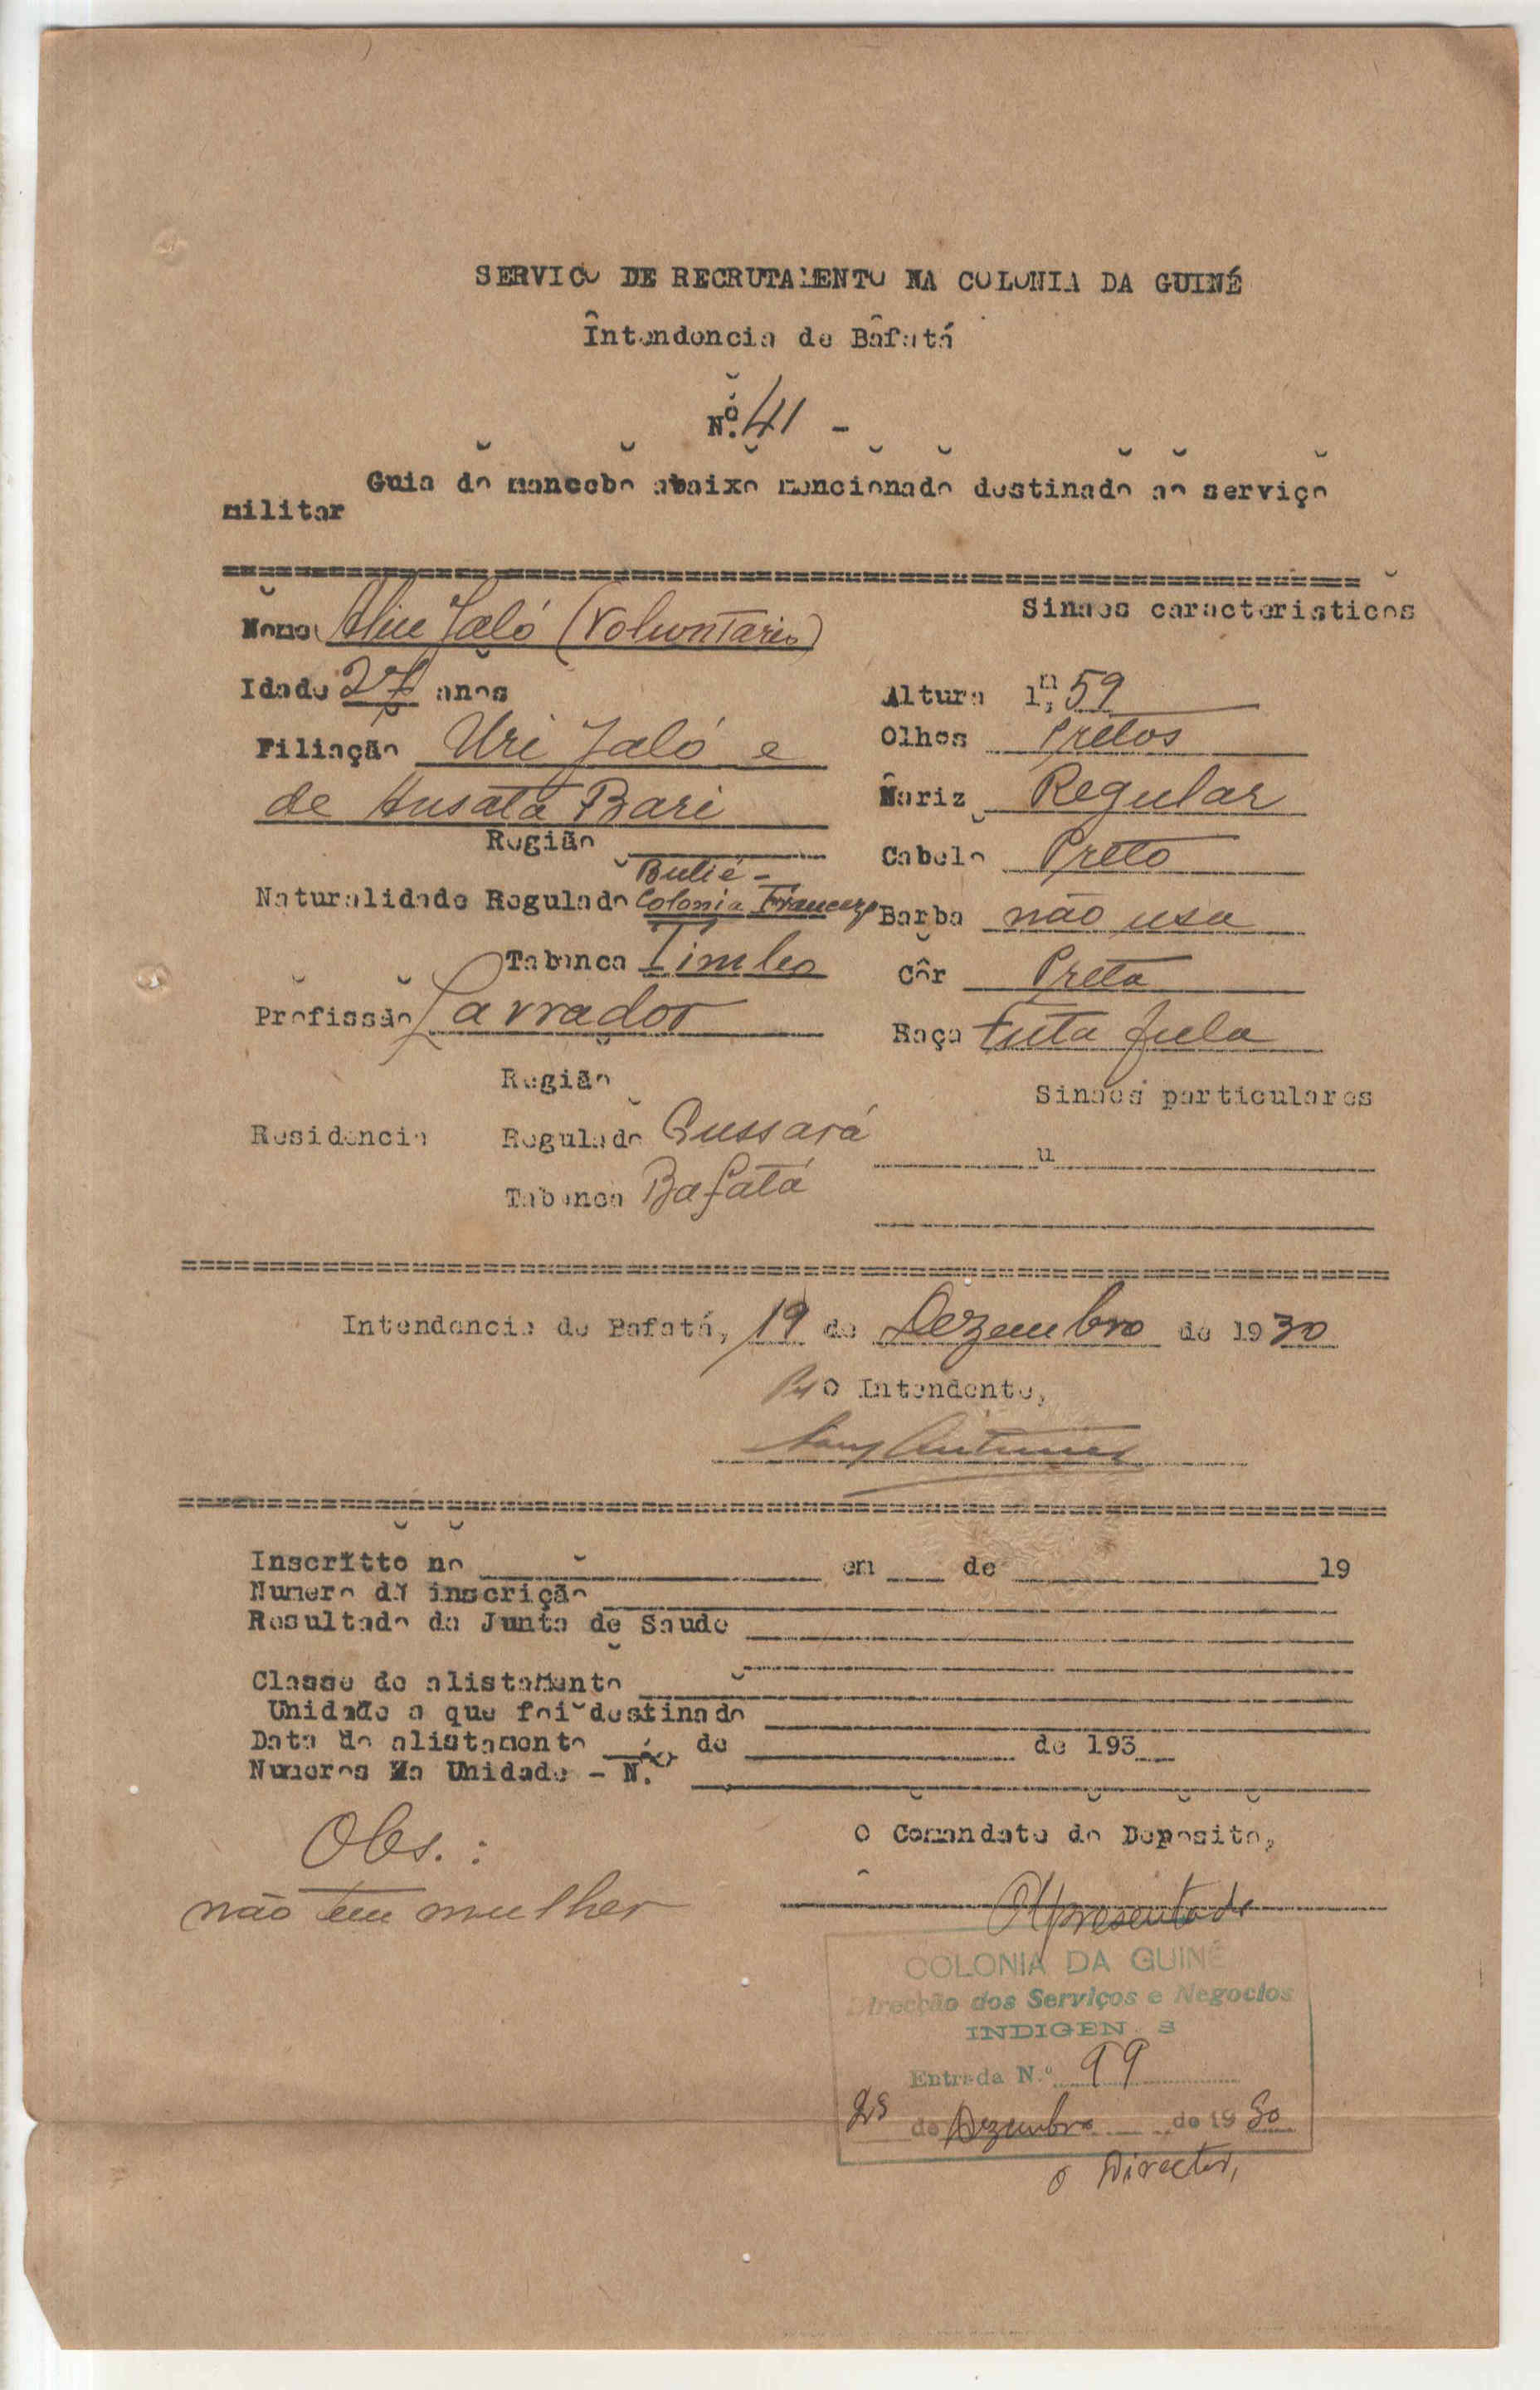 SERVICO DE RECRUTAMENTO NA COLONIA DA GUINÉ
Intendencia de Bafatá
Nº. 41 -
Guia do mancebo abaixo mencionado destinado ao serviço
militar
Sinaes caracteristicos
Nome Aliu Jaló (Voluntario)
Idade 27 anos
Altura 1,m59
Filiação Uri Jaló e
Olhos Pretos
de Aussata Bari
Nariz Regular
Região
Cabelo Preto
Naturalidade Regulado Colonia Franceza
Barba não usa
Tabanca Timbo
Côr Preta
Profissão Lavrador
Raça Futa fula
Região
Sinaes particulares
Residencia Regulado Gussará
Tabanca Bafatá
Intendencia de Bafatá, 19 de Dezembro de 1930
O Intendente,
Antunes
Inscritto no em de 19
Numero da inscrição
Resultado da Junta de Saude
Classe do alistamento
Unidade a que foi destinado
Data do alistamento de de 193
Numeros Na Unidade - N.
Obs. :
O Comandate do Deposito,
não tem mulher
Apresentado
COLONIA DA GUINÉ
Direcção dos Serviços e Negocios
INDIGEN S
Entrada N.º 99
de Dezembro de 1930
O Director,